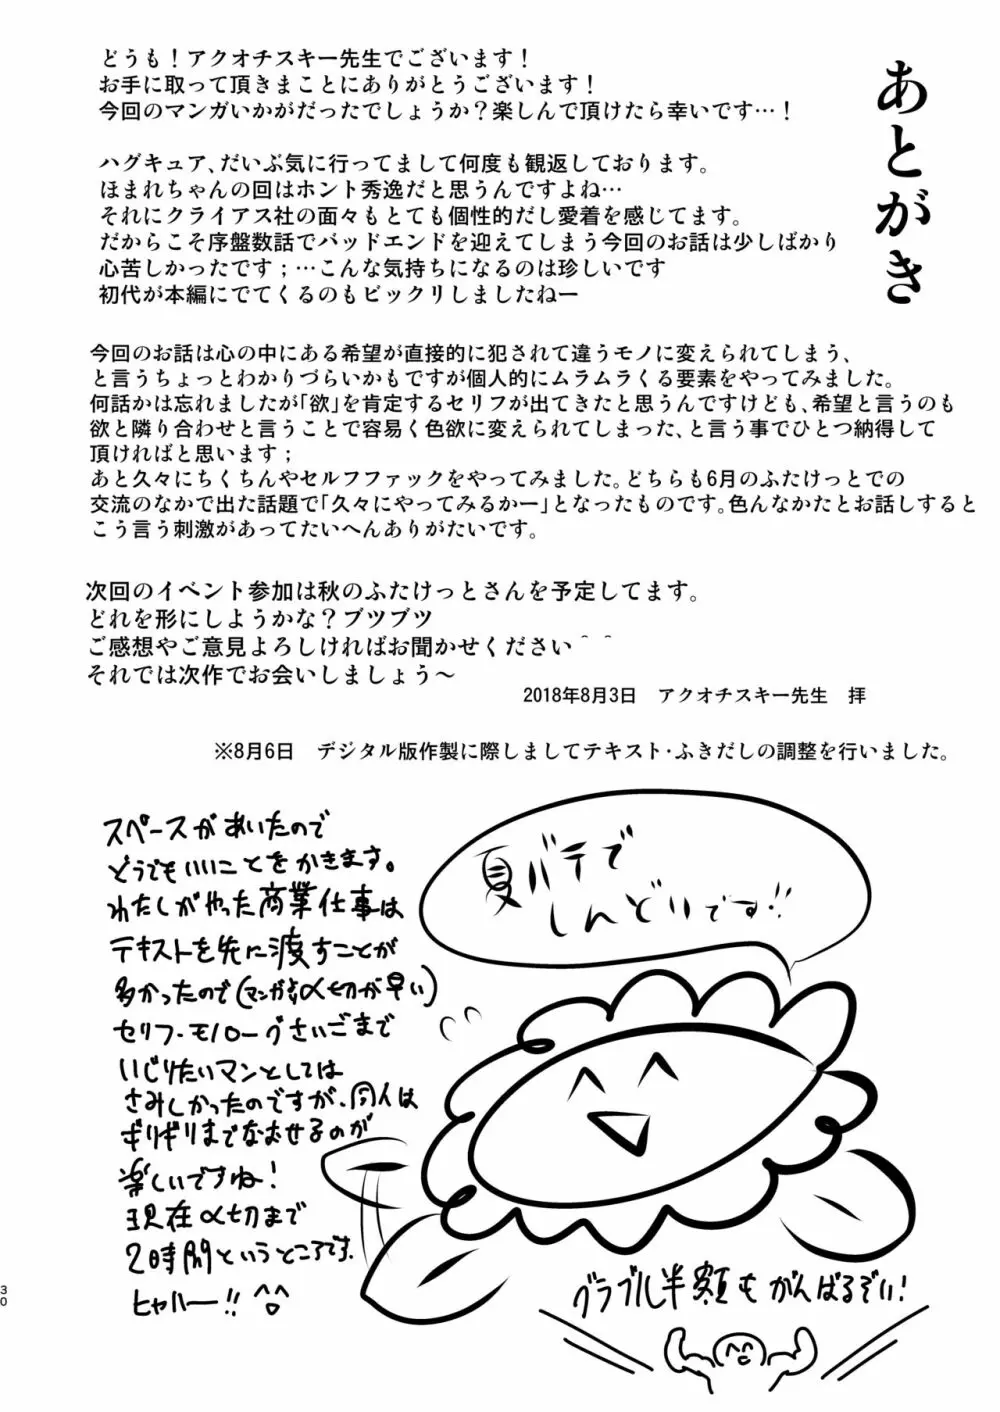 あとがき
どうも！アクオチスキー先生でございます！
お手に取って頂きまことにありがとうございます！
今回のマンガいかがだったでしょうか？楽しんで頂けたら幸いです…！
ハグキュア、だいぶ気に行ってまして何度も観返しております。
ほまれちゃんの回はホント秀逸だと思うんですよね…
それにクライアス社の面々もとても個性的だし愛着を感じてます。
だからこそ序盤数話でバッドエンドを迎えてしまう今回のお話は少しばかり
心苦しかったです；…こんな気持ちになるのは珍しいです
初代が本編にでてくるのもビックリしましたねー
今回のお話は心の中にある希望が直接的に犯されて違うモノに変えられてしまう、
と言うちょっとわかりづらいかもですが個人的にムラムラくる要素をやってみました。
何話かは忘れましたが「欲」を肯定するセリフが出てきたと思うんですけども、希望と言うのも
欲と隣り合わせと言うことで容易く色欲に変えられてしまった、と言う事でひとつ納得して
頂ければと思います；
あと久々にちくちんやセルフファックをやってみました。どちらも6月のふたけっとでの
交流のなかで出た話題で「久々にやってみるかー」となったものです。色んなかたとお話しすると
こう言う刺激があってたいへんありがたいです。
次回のイベント参加は秋のふたけっとさんを予定してます。
どれを形にしようかな？ブツブツ
ご感想やご意見よろしければお聞かせください＾＾
それでは次作でお会いしましょう〜
2018年8月3日　アクオチスキー先生　拝
※8月6日　デジタル版作製に際しましてテキスト・ふきだしの調整を行いました。
スペースがあいたので
どうでもいいことをかきます。
わたしがやった商業仕事は
テキストを先に渡すことが
多かったので(マンガより〆切が早い)
セリフ・モノローグさいごまで
いじりたいマンとしては
さみしかったのですが、同人は
ギリギリまでなおせるのが
楽しいですね！
現在〆切まで
2時間というところです。
ヒャハー!!
夏バテで
しんどいです!!
グラブル半額もがんばるぞい！
30